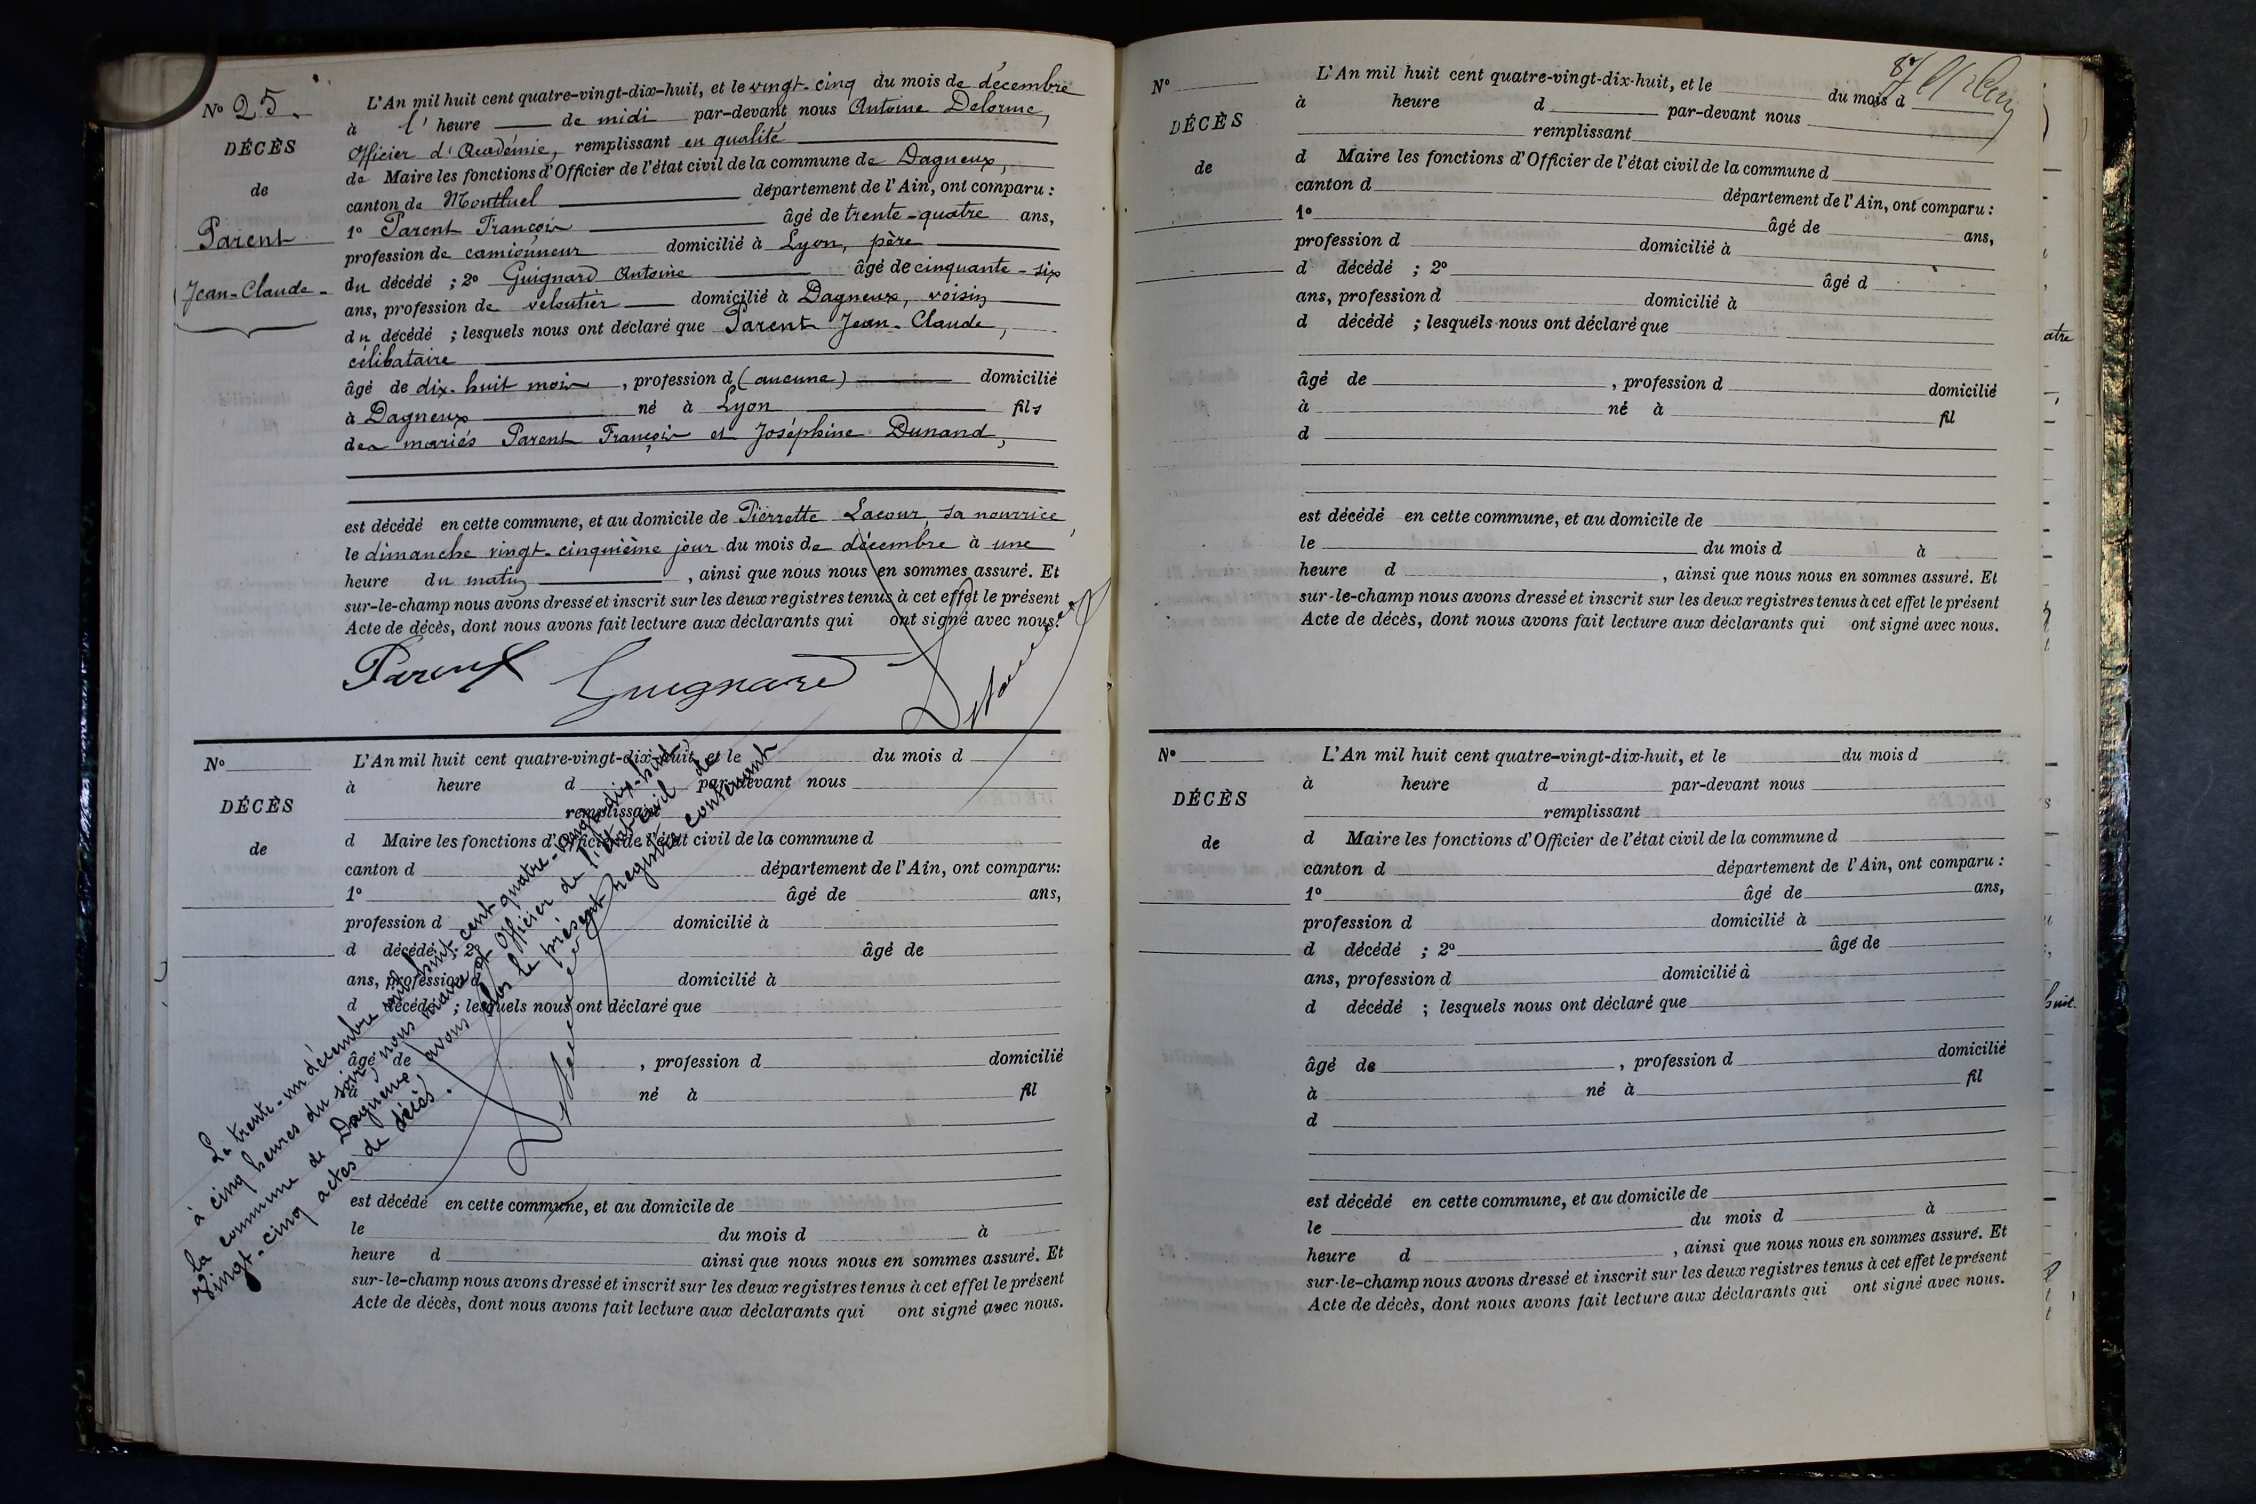 No 25.
DÉCÈS
de
Parent
Jean-Claude
L'An mil huit cent quatre-vingt-dix-huit, et le vingt-cinq du mois de décembre
à l' heure de midi par-devant nous Antoine Delorme,
Officier d'Académie, remplissant en qualité
de Maire les fonctions d'Officier de l'état civil de la commune de Dagneux,
canton de Montluel département de l'Ain, ont comparu :
1o Parent François âgé de trente-quatre ans,
profession de camionneur domicilié à Lyon, père
du décédé ; 2o Guignard Antoine âgé de cinquante-six
ans, profession de veloutier domicilié à Dagneux, voisin
du décédé ; lesquels nous ont déclaré que Parent Jean-Claude,
célibataire
âgé de dix-huit mois, profession d (aucune) domicilié
à Dagneux né à Lyon fils
des mariés Parent François et Joséphine Dunand,
est décédé en cette commune, et au domicile de Pierrette Lacour, sa nourrice,
le dimanche vingt-cinquième jour du mois de décembre à une
heure du matin, ainsi que nous nous en sommes assuré. Et
sur-le-champ nous avons dressé et inscrit sur les deux registres tenus à cet effet le présent
Acte de décès, dont nous avons fait lecture aux déclarants qui ont signé avec nous.
Parent Guignard Delorme
No
DÉCÈS
de
L'An mil huit cent quatre-vingt-dix-huit, et le du mois d
à heure d par-devant nous
remplissant
d Maire les fonctions d'Officier de l'état civil de la commune d
canton d département de l'Ain, ont comparu:
1o âgé de ans,
profession d domicilié à
d décédé ; 2o âgé de
ans, profession d domicilié à
d décédé ; lesquels nous ont déclaré que
âgé de , profession d domicilié
à né à fil
d
est décédé en cette commune, et au domicile de
le du mois d à
heure d ainsi que nous nous en sommes assuré. Et
sur-le-champ nous avons dressé et inscrit sur les deux registres tenus à cet effet le présent
Acte de décès, dont nous avons fait lecture aux déclarants qui ont signé avec nous.
Le trente-un décembre mil huit cent quatre-vingt-dix-huit,
à cinq heures du soir, nous maire et Officier de l'état civil de
la commune de Dagneux, avons clos le présent registre contenant
vingt-cinq actes de décès.
Delorme
87
No
DÉCÈS
de
L'An mil huit cent quatre-vingt-dix-huit, et le du mois d
à heure d par-devant nous
remplissant
d Maire les fonctions d'Officier de l'état civil de la commune d
canton d département de l'Ain, ont comparu :
1o âgé de ans,
profession d domicilié à
d décédé ; 2o âgé d
ans, profession d domicilié à
d décédé ; lesquels nous ont déclaré que
âgé de , profession d domicilié
à né à fil
d
est décédé en cette commune, et au domicile de
le du mois d à
heure d , ainsi que nous nous en sommes assuré. Et
sur-le-champ nous avons dressé et inscrit sur les deux registres tenus à cet effet le présent
Acte de décès, dont nous avons fait lecture aux déclarants qui ont signé avec nous.
No
DÉCÈS
de
L'An mil huit cent quatre-vingt-dix-huit, et le du mois d
à heure d par-devant nous
remplissant
d Maire les fonctions d'Officier de l'état civil de la commune d
canton d département de l'Ain, ont comparu :
1o âgé de ans,
profession d domicilié à
d décédé ; 2o âgé de
ans, profession d domicilié à
d décédé ; lesquels nous ont déclaré que
âgé de , profession d domicilié
à né à fil
d
est décédé en cette commune, et au domicile de
le du mois d à
heure d , ainsi que nous nous en sommes assuré. Et
sur-le-champ nous avons dressé et inscrit sur les deux registres tenus à cet effet le présent
Acte de décès, dont nous avons fait lecture aux déclarants qui ont signé avec nous.